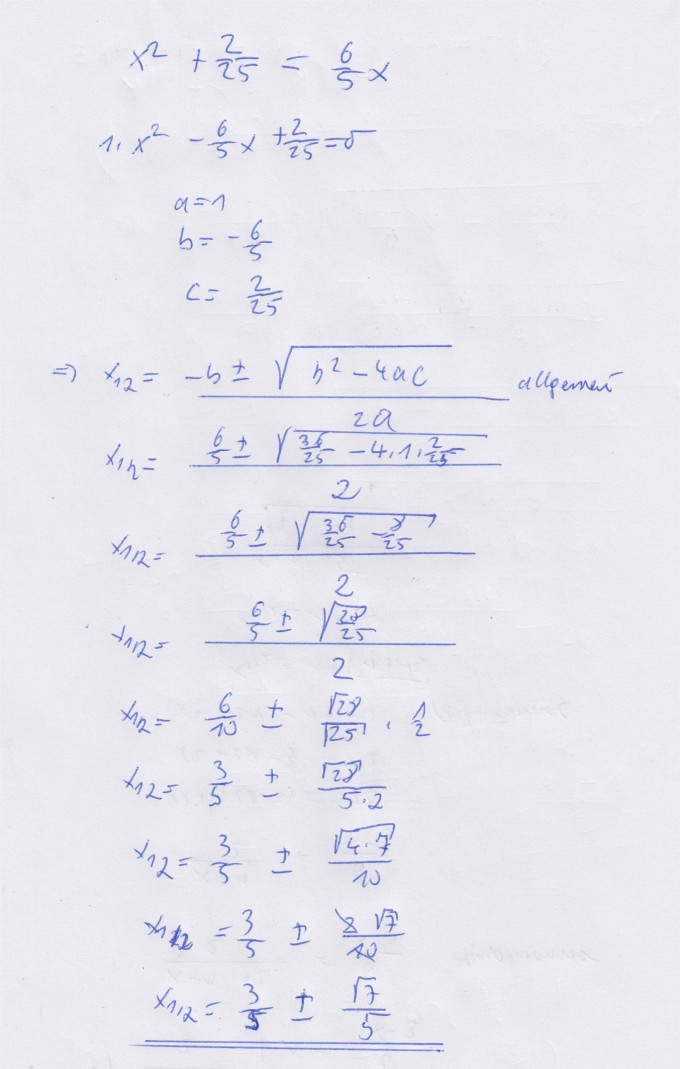 x² + 2/25 = 6/5 x
1. x² - 6/5 x + 2/25 = 0
a = 1
b = - 6/5
c = 2/25
=> x₁₂ = (-b ± √(b² - 4ac)) / 2a allgemein
x₁,₂ = (6/5 ± √(36/25 - 4.1.2/25)) / 2
x₁,₂ = (6/5 ± √(36/25 - 8/25)) / 2
x₁,₂ = (6/5 ± √(28/25)) / 2
x₁,₂ = 6/10 ± √28/√25 · 1/2
x₁,₂ = 3/5 ± √28/(5·2)
x₁,₂ = 3/5 ± √(4·7)/10
x₁,₂ = 3/5 ± 2√7/10
x₁,₂ = 3/5 ± √7/5